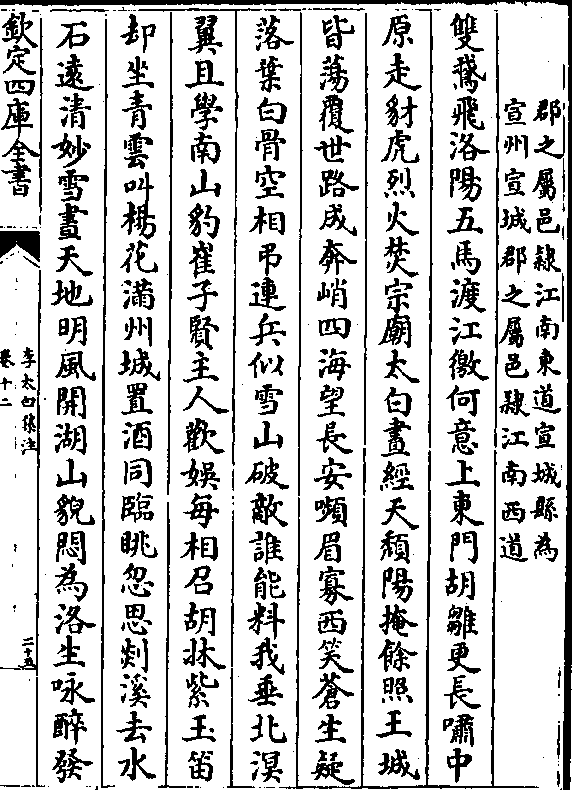 郡之屬邑隷江南東道宣城縣為
宣州宣城郡之屬邑隷江南西道
雙鵞飛洛陽五馬渡江徼何意上東門胡雛更長嘯中
原走豺虎烈火焚宗廟太白晝經天頽陽掩餘照王城
皆蕩覆世路成奔峭四海望長安嚬眉寡西笑蒼生疑
落葉白骨空相弔連兵似雪山破敵誰能料我垂北溟
翼且學南山豹崔子賢主人歡娛每相召胡牀紫玉笛
却坐青雲叫楊花滿州城置酒同臨眺忽思剡溪去水
石遠清妙雪晝天地明風開湖山貌悶為洛生咏醉發
欽定四庫全書
李太白集注
卷十二
二十五